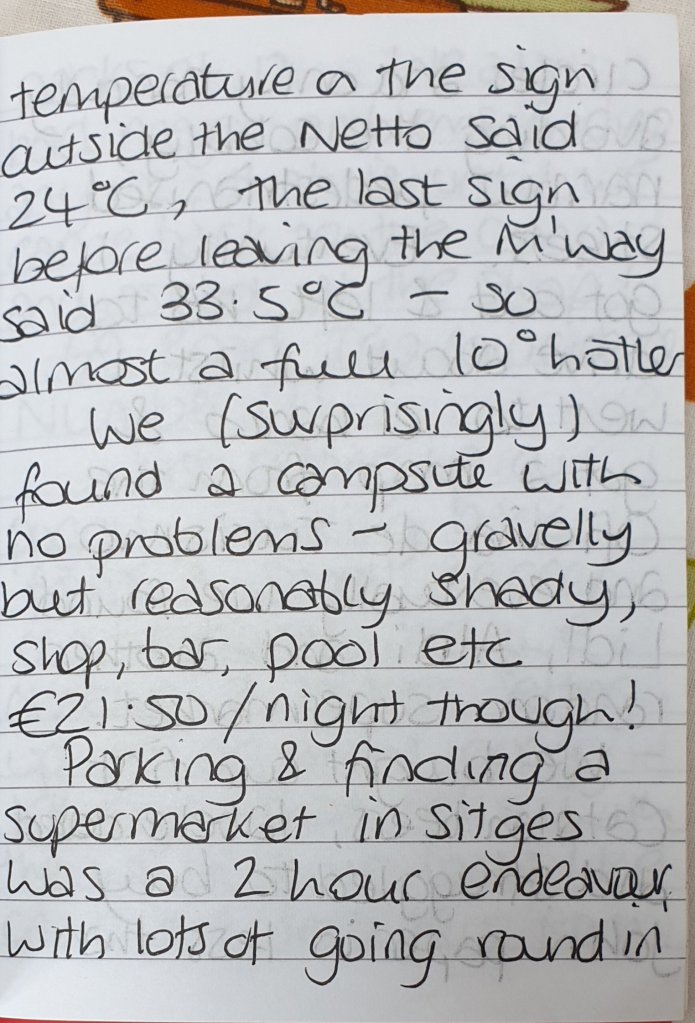 temperature a the sign
outside the Netto said
24°C, the last sign
before leaving the M'way
said 33.5°C - so
almost a full 10° hotter
We (surprisingly)
found a campsite with
no problems - gravelly
but reasonably shady,
shop, bar, pool etc
€21.50/night though!
Parking & finding a
supermarket in Sitges
was a 2 hour endeavour,
with lots of going round in